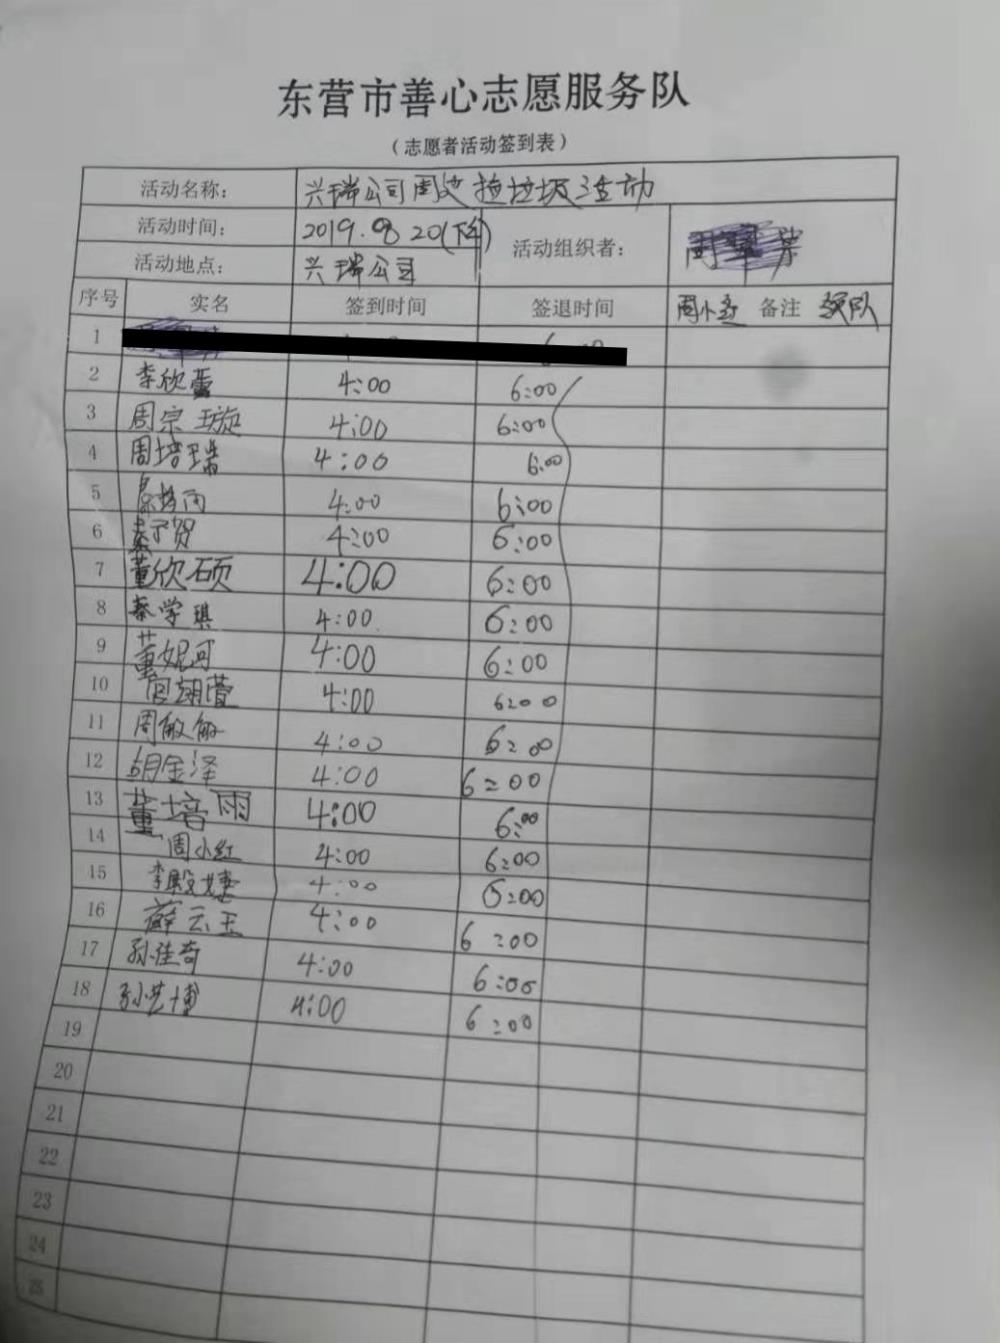 东营市善心志愿服务队
（志愿者活动签到表）
活动名称： 兴瑞公司周边捡垃圾活动
活动时间： 2019.08 20(下午) 活动组织者：
活动地点： 兴瑞公司
序号 实名 签到时间 签退时间 周小红 备注 领队
1
2 李欣蕾 4:00 6:00
3 周宗璇 4:00 6:00
4 周培瑞 4:00 6:00
5 4:00 6:00
6 秦子贺 4:00 6:00
7 董欣硕 4:00 6:00
8 秦学琪 4:00 6:00
9 董妮可 4:00 6:00
10 4:00 6:00
11 周敏敏 4:00 6:00
12 胡金泽 4:00 6:00
13 董培雨 4:00 6:00
14 周小红 4:00 6:00
15 李殿婕 4:00 6:00
16 薛云玉 4:00 6:00
17 孙佳奇 4:00 6:00
18 孙艺博 4:00 6:00
19
20
21
22
23
24
25